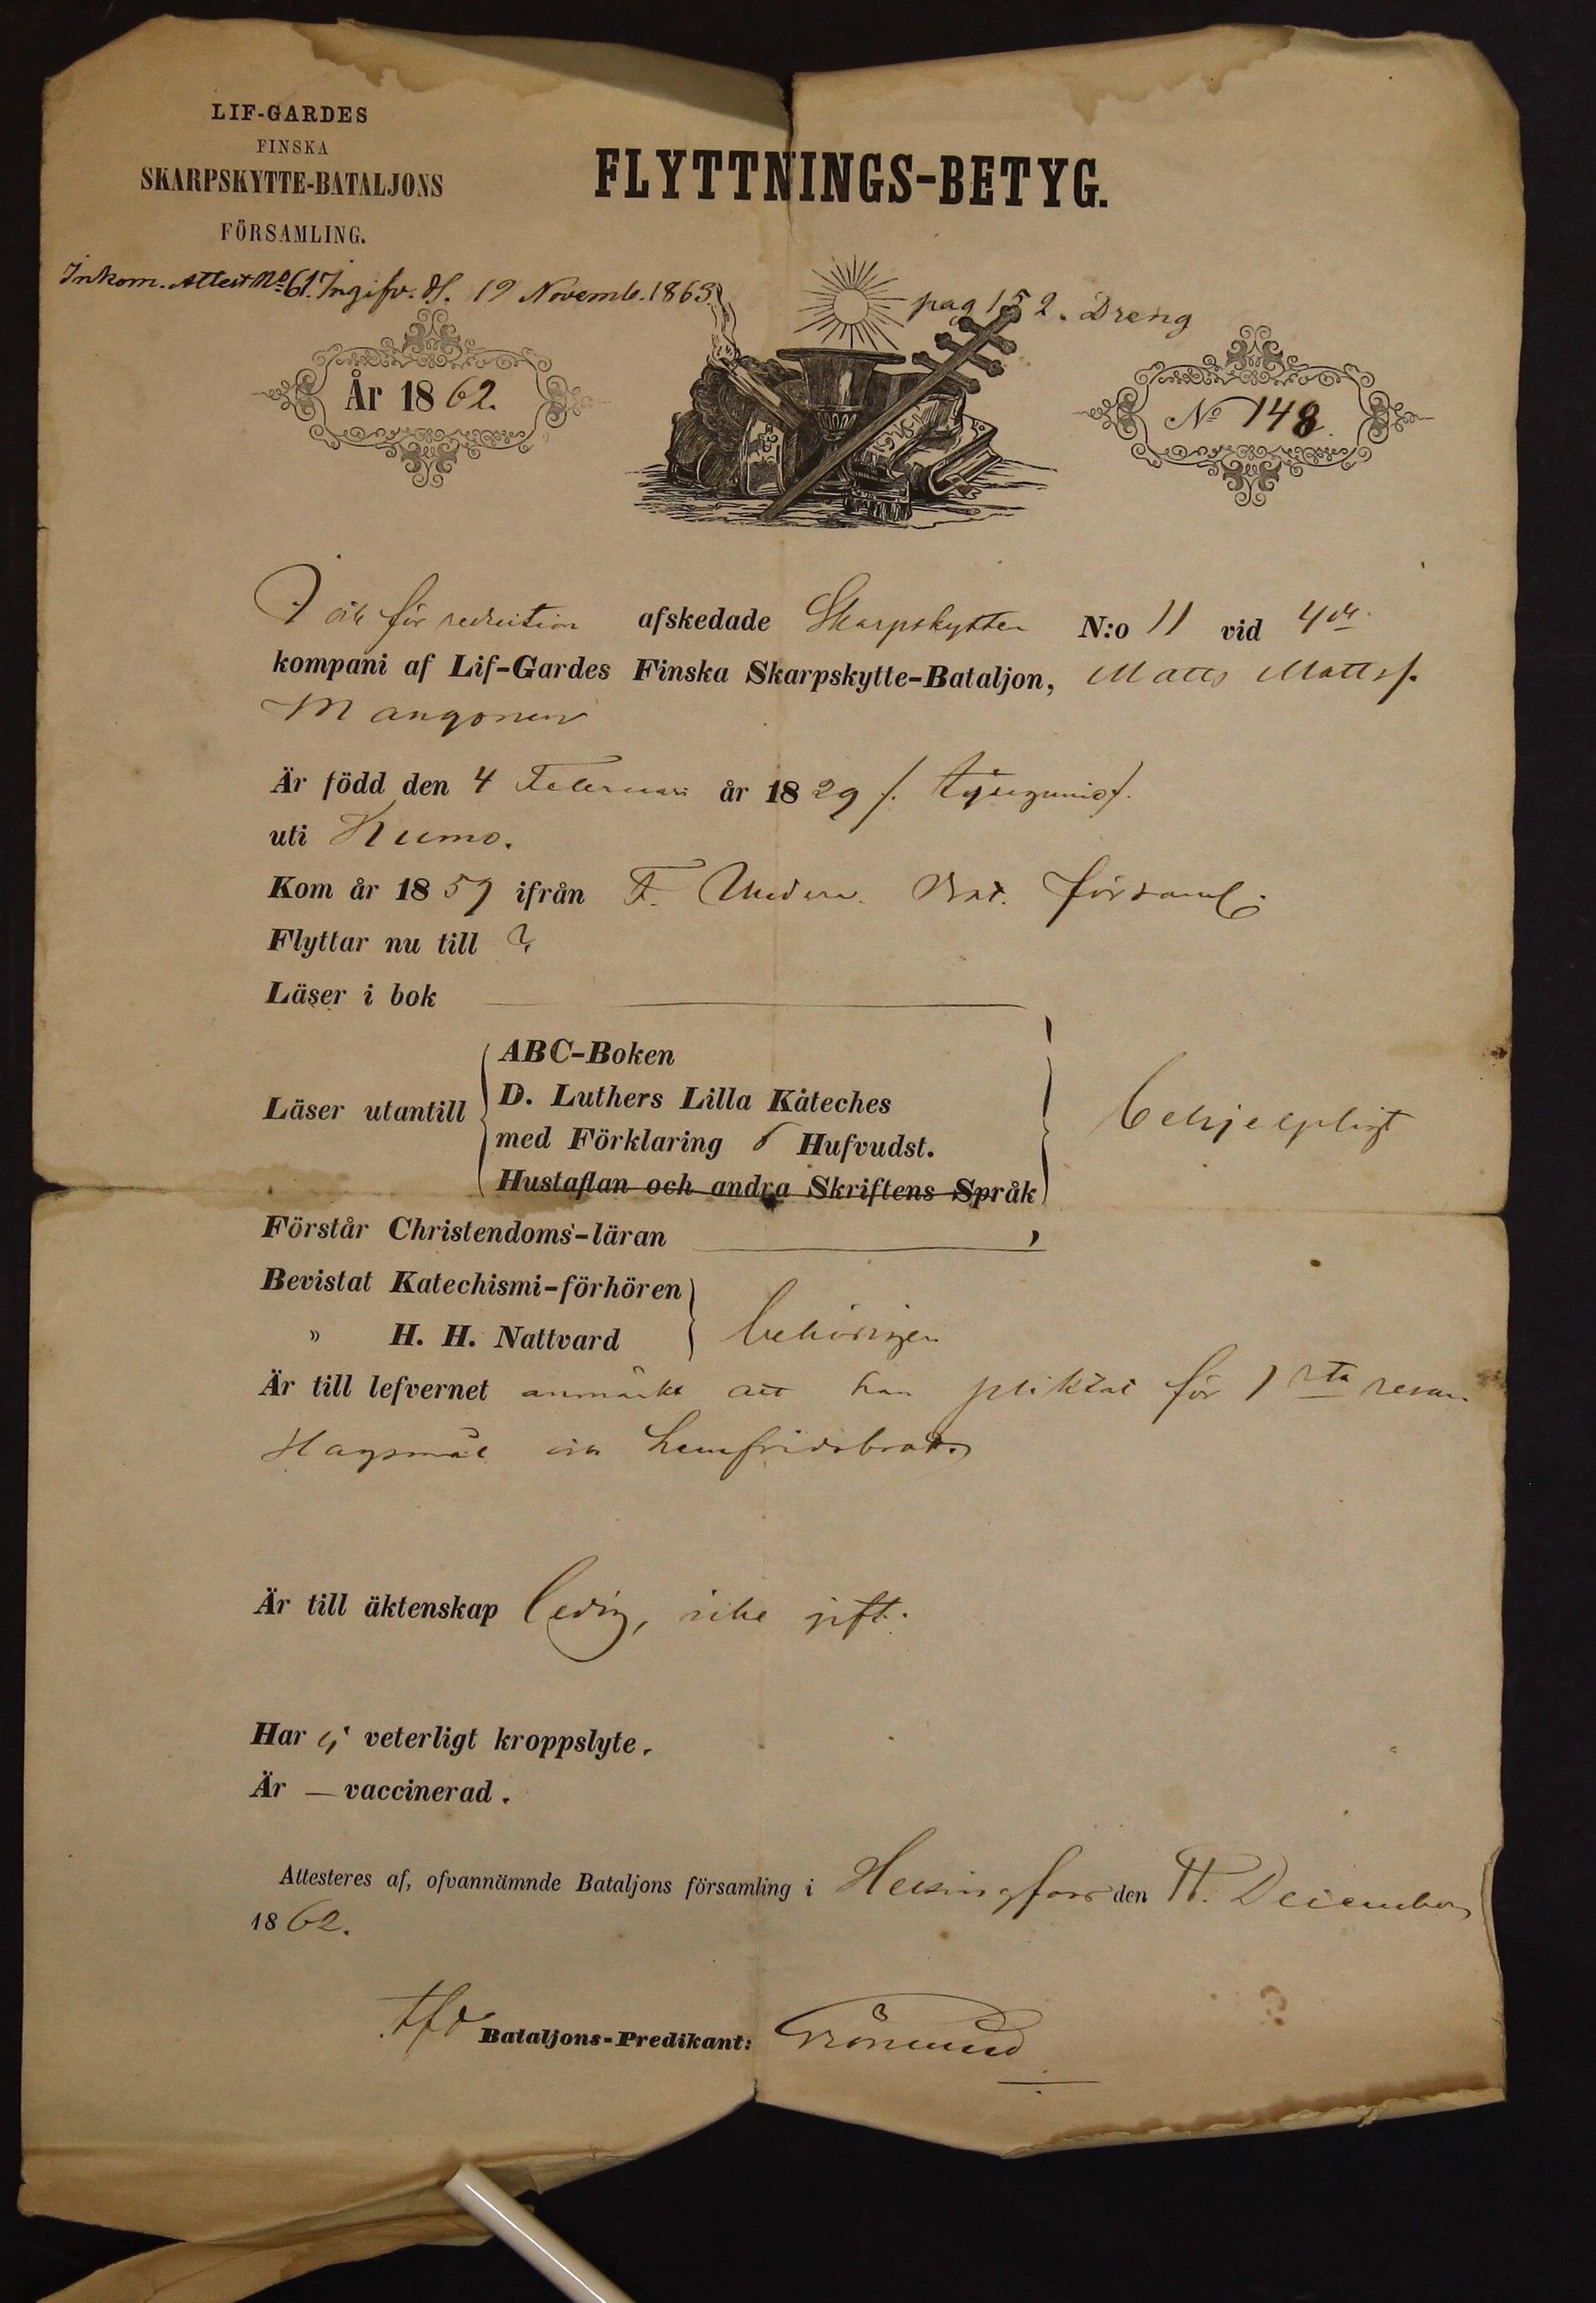 LIF-GARDES
FINSKA
SKARPSKYTTE-BATALJONS
FÖRSAMLING.
FLYTTNINGS-BETYG.
Inkom. Attest No 61. Ingifv. d. 19 Novemb. 1863
pag 152. Dreng
År 1862.
No 148.
för reduction afskedade Skarpskytten N:o 11 vid 4de
kompani af Lif-Gardes Finska Skarpskytte-Bataljon, Matts Mattsf.
Mangonen
Är född den 4 Februari år 1829
uti Kumo.
Kom år 1857 ifrån F. Bat. församl.
Flyttar nu till ?
Läser i bok
Läser utantill
ABC-Boken
D. Luthers Lilla Kateches
med Förklaring 5 Hufvudst.
Hustaflan och andra Skriftens Språk
behjelpligt
Förstår Christendoms-läran
Bevistat Katechismi-förhören
" H. H. Nattvard
behörigen
Är till lefvernet anmärkt att han pliktat för 1sta resan
Slagsmål och hemfridsbrott.
Är till äktenskap ledig, icke gift.
Har ej veterligt kroppslyte.
Är — vaccinerad.
Attesteres af, ofvannämnde Bataljons församling i Helsingfors den 11. December
1862.
Bataljons-Predikant: Grönlund